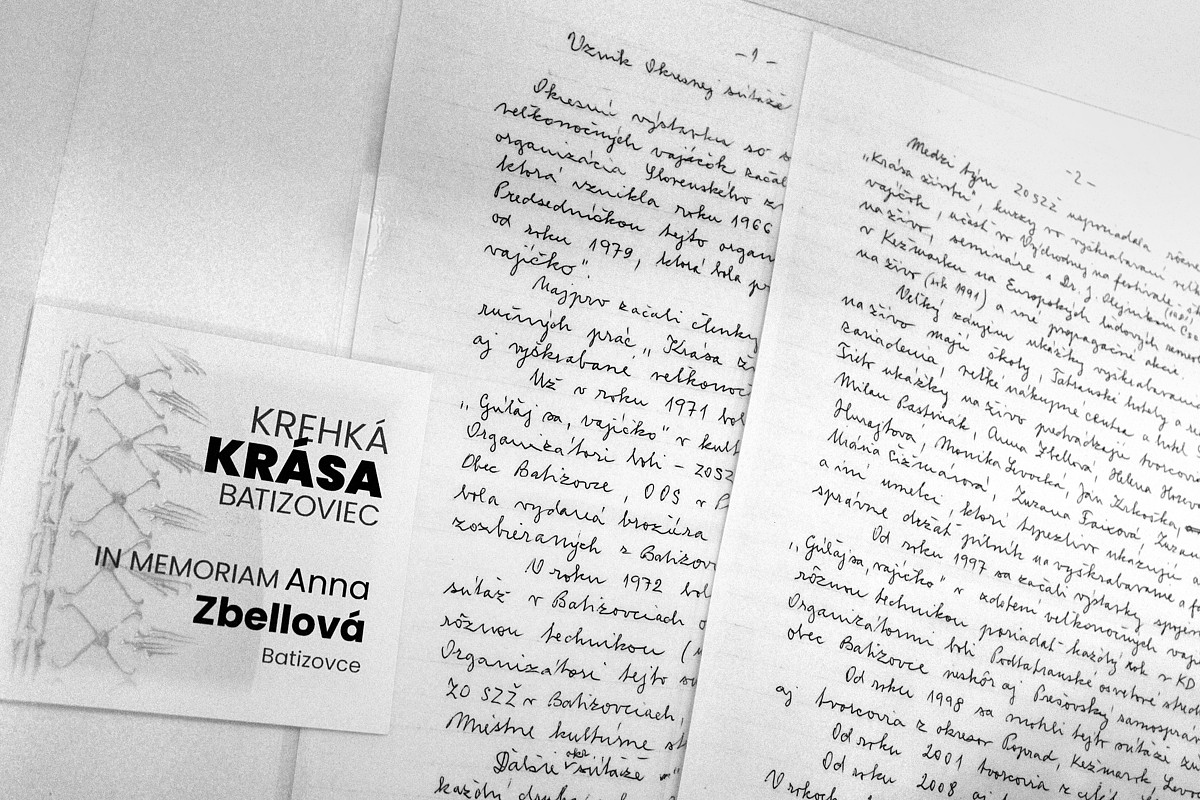 KREHKÁ
KRÁSA
BATIZOVIEC
IN MEMORIAM Anna
Zbellová
Batizovce
-1-
Vznik Okresnej súťaže
Okresnú výstavku so
veľkonočných vajíčok začal
organizácia Slovenského
ktorá vznikla roku 1966
Predsedníčkou tejto organ
od roku 1979, ktorá bola
vajíčko".
Najprv začali členky
ručných prác „Krása
aj vyškrabané veľkonoč
Už v roku 1971
„Gúľaj sa, vajíčko" v kult
Organizátori boli - ZOSZ
Obec Batizovce, OOS v
bola vydaná brožúra
zozbieraných z Batizov
V roku 1972 bol
súťaž v Batizovciach
rôznou technikou (
Organizátori tejto
ZO SZŽ v Batizovciach,
Miestne kultúrne
Ďalšie okr. súťaže
každý
-2-
Medzi tým ZOSZŽ usporiadala
„Krása života", kurzy vo vyškrabávaní
vajíčok, účasť vo Východnej na festivale
na živo, semináre s Dr. J. Olejníkom
v Kežmarku na Európskych ľudových
na živo (rok 1991) a iné propagačné akcie.
Veľký záujem ukážky vyškrabávania
na živo majú školy, Tatranské hotely a
zariadenia, veľké nákupné centrá a
Tieto ukážky na živo predvádzajú tvorcovia
Milan Pastirák, Anna Zbellová, Helena
Hunajtova, Monika Levocká, Ján Krkoška,
Mária Čižmárová, Zuzana Faixová,
a iní umelci, ktorí trpezlivo ukazujú
správne držať pilník na vyškrabávanie a
Od roku 1997 sa začali výstavky spojené
„Gúľaj sa, vajíčko" v zdobení veľkonočných
rôznou technikou poriadať každý rok v KD
Organizátormi boli Podtatranské osvetové
obec Batizovce neskôr aj Prešovský
Od roku 1998 sa mohli tejto súťaže
aj tvorcovia z okresov Poprad, Kežmarok,
Od roku 2001 tvorcovia z
Od roku 2008 aj
V rokoch